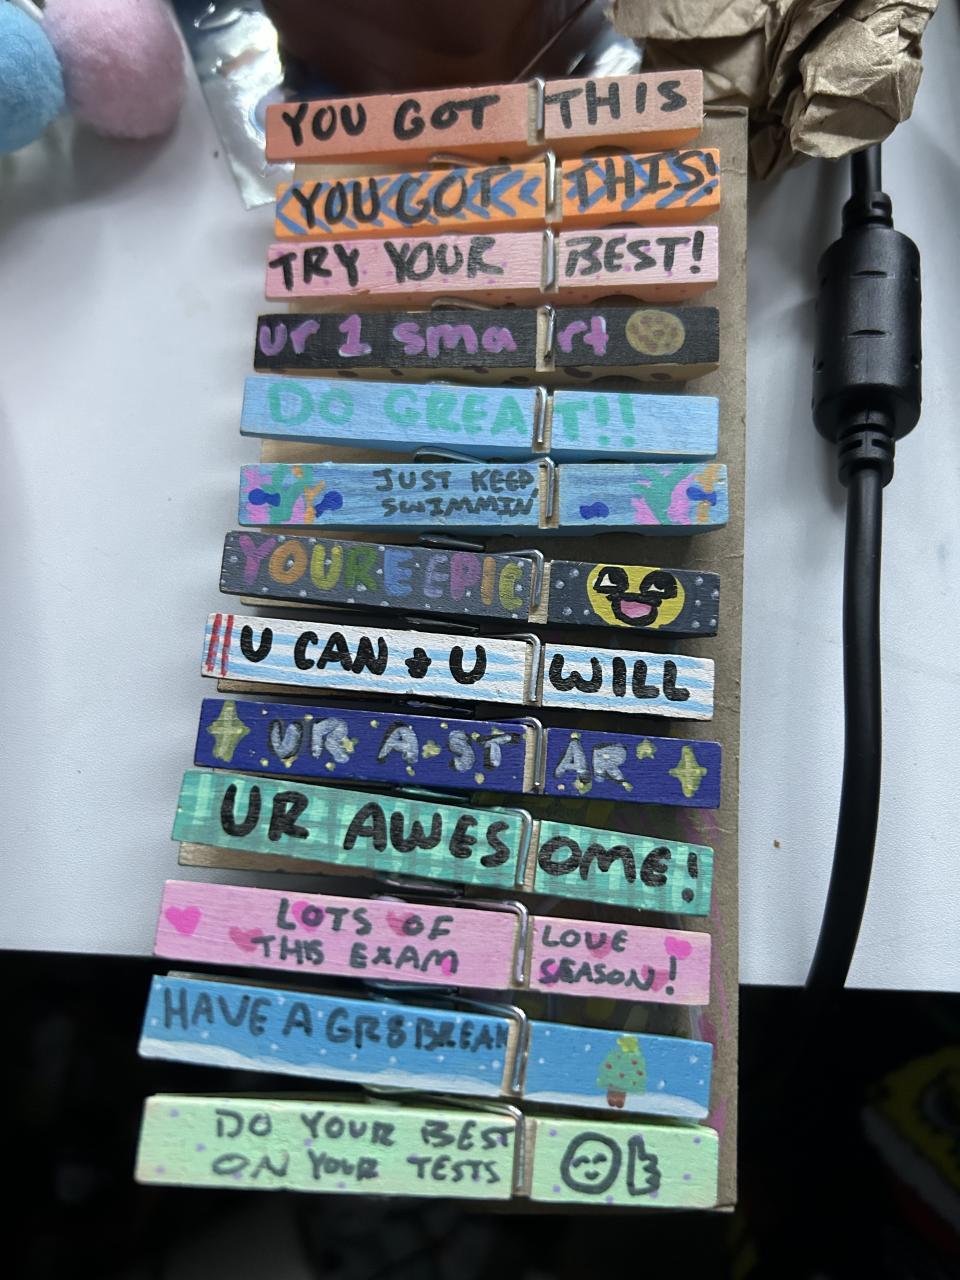 YOU GOT THIS
YOU GOT THIS!
TRY YOUR BEST!
ur 1 smart
DO GREAT!!
JUST KEEP
SWIMMIN'
YOURE EPIC
U CAN + U WILL
UR A STAR
UR AWESOME!
LOTS OF LOVE
THIS EXAM SEASON!
HAVE A GR8 BREAK
DO YOUR BEST
ON YOUR TESTS